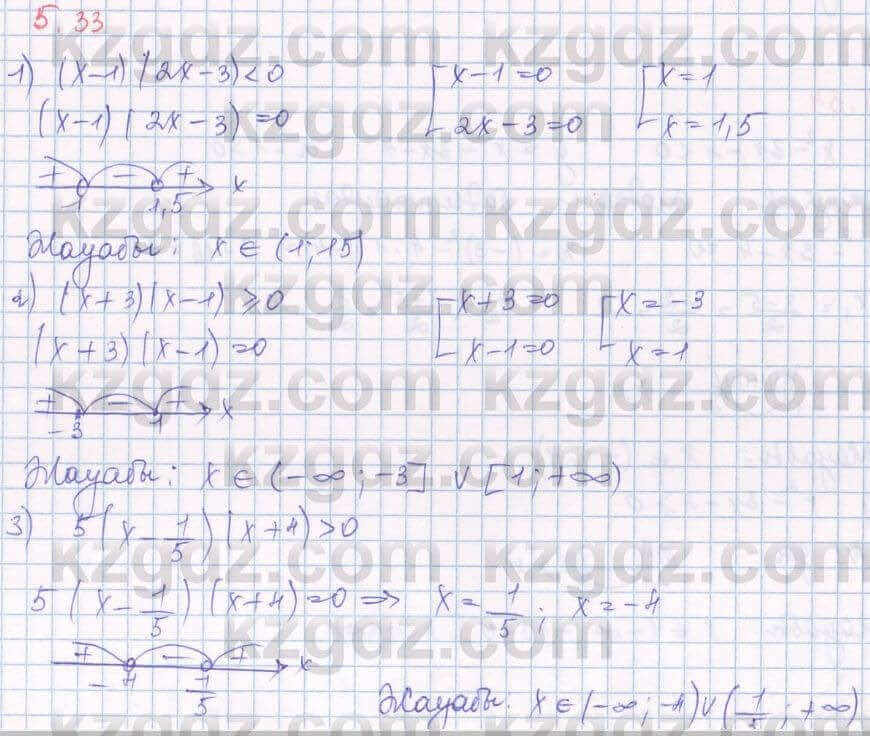 5.33
1) (x-1)(2x-3)<0 [x-1=0 [x=1
(x-1)(2x-3)=0 2x-3=0 x=1,5
+ - + x
1 1,5
Жауабы: x ∈ (1; 15)
2) (x+3)(x-1)≥0 [x+3=0 [x=-3
(x+3)(x-1)=0 x-1=0 x=1
+ - + x
-3 1
Жауабы: x ∈ (-∞; -3] ∪ [1; +∞)
3) 5(x-1/5)(x+4)>0
5(x-1/5)(x+4)=0 => x=1/5; x=-4
+ - + x
-4 1/5
Жауабы. x ∈ (-∞; -4) ∪ (1/5; +∞)
kzgdz.com